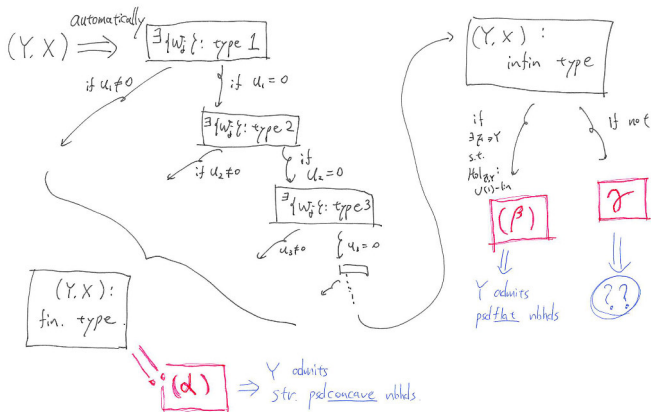 automatically
(Y, X) ⟹ ∃{Wj}: type 1
if u₁≠0
if u₁=0
∃{Wj}: type 2
if u₂≠0
if
u₂=0
∃{Wj}: type 3
u₃≠0
u₃=0
(Y, X):
fin. type.
(α)
⟹ Y admits
str. psdconcave nbhds.
(Y, X):
infin type
if
s.t.
U(1)-lin
If not
(β)
γ
Y admits
psdflat nbhds
??